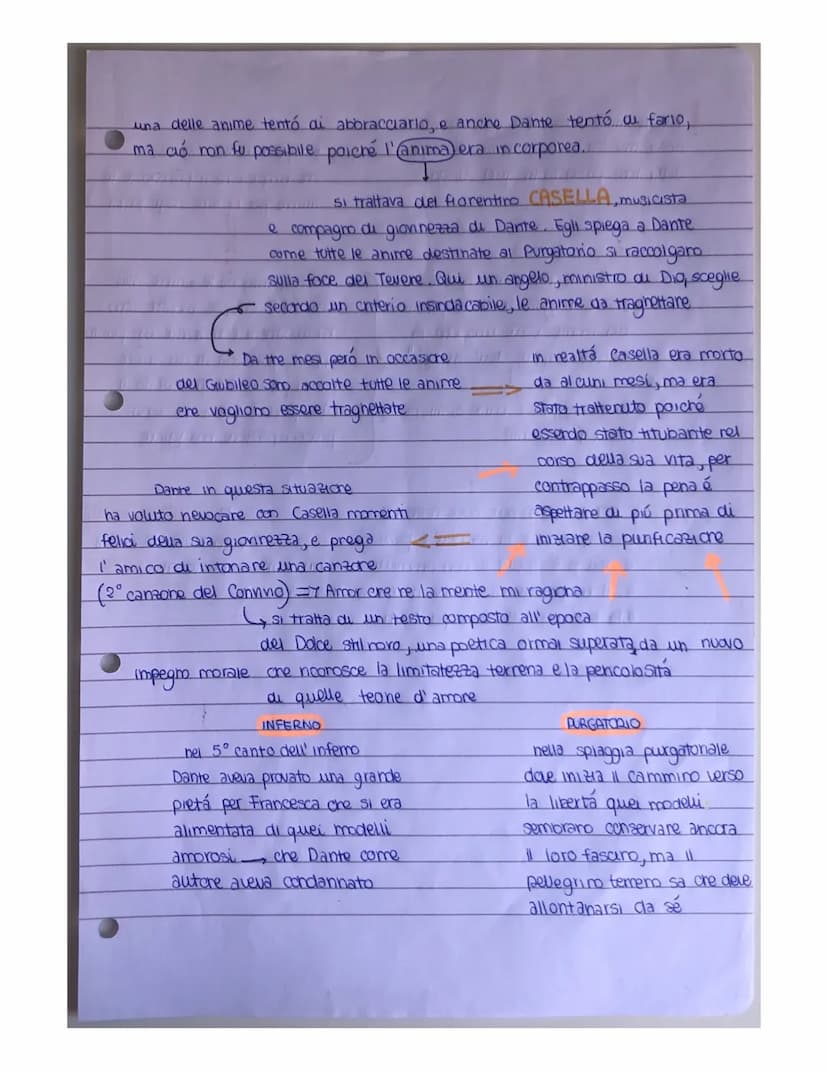 una delle anime tentó di abbracciarlo, e anche Dante tentó di farlo,
ma ció non fu possibile poiché l'anima era incorporea.
si trattava del fiorentino CASELLA, musicista
e compagno di giovinezza di Dante. Egli spiega a Dante
come tutte le anime destinate al Purgatorio si raccolgano
sulla foce del Tevere. Qui un angelo, ministro di Dio, sceglie
secondo un criterio insindacabile, le anime da traghettare
Da tre mesi peró in occasione
del Giubileo sono accolte tutte le anime =>
che vogliono essere traghettate
in realtá Casella era morto
da alcuni mesi, ma era
stato trattenuto poiché
essendo stato titubante nel
corso della sua vita, per
contrappasso la pena é
aspettare di piú prima di
iniziare la purificazione
Dante in questa situazione
ha voluto rievocare con Casella momenti
felici della sua giovinezza, e prega <=
l'amico di intonare una canzone
(2° canzone del Convivio) => Amor che ne la mente mi ragiona
si tratta di un testo composto all'epoca
del Dolce stil novo, una poetica ormai superata, da un nuovo
impegno morale che riconosce la limitatezza terrena e la pericolositá
di quelle teorie d'amore
INFERNO
nel 5° canto dell'inferno
Dante aveva provato una grande
pietá per Francesca che si era
alimentata di quei modelli
amorosi → che Dante come
autore aveva condannato
PURGATORIO
nella spiaggia purgatoriale
dove inizia il cammino verso
la libertá quei modelli
sembrano conservare ancora
il loro fascino, ma il
pellegrino terreno sa che deve
allontanarsi da sé